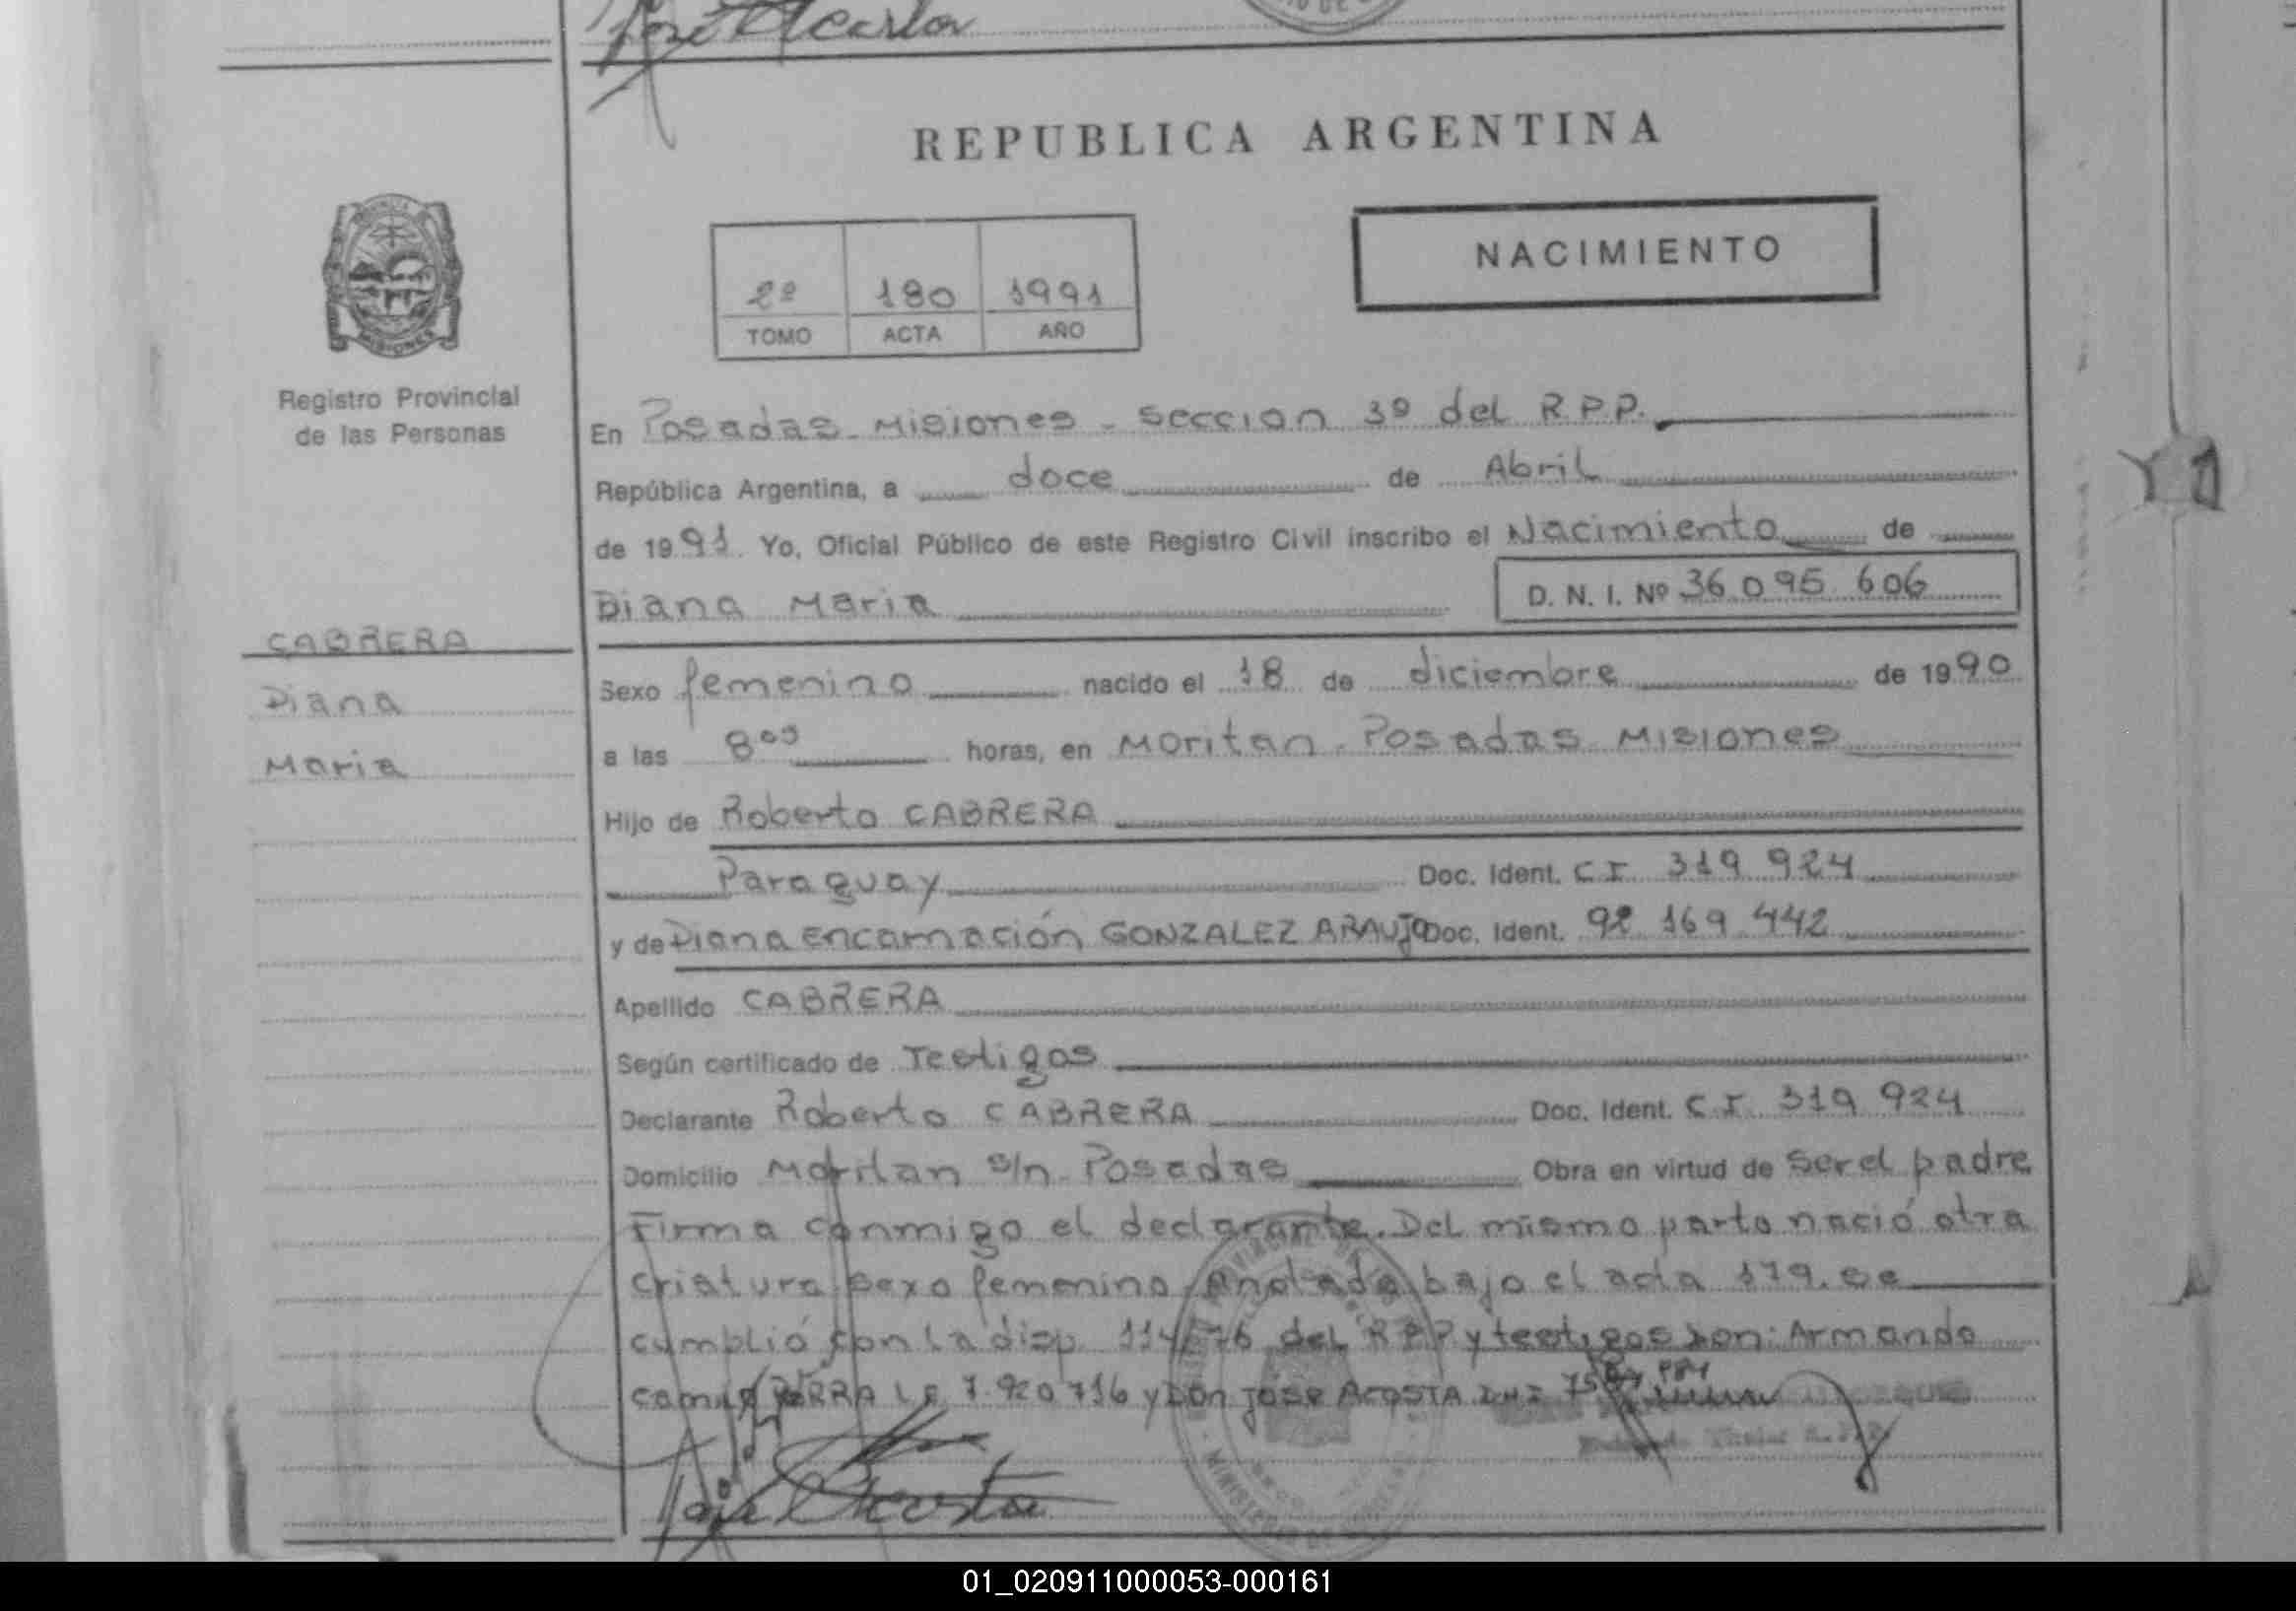 REPUBLICA ARGENTINA
NACIMIENTO
2º 180 1991
TOMO ACTA AÑO
MISIONES
Registro Provincial
de las Personas
CABRERA
Diana
Maria
En Posadas Misiones - Seccion 3º del R.P.P.
República Argentina, a doce de Abril
de 1991. Yo, Oficial Público de este Registro Civil inscribo el Nacimiento de
Diana Maria D. N. I. Nº 36 095 606
Sexo femenino nacido el 18 de diciembre de 1990
a las 8 horas, en Moritan - Posadas Misiones
Hijo de Roberto CABRERA
Paraguay Doc. Ident. C I 319 924
y de Diana Encarnación GONZALEZ ARAUJO Doc. Ident. 92 169 442
Apellido CABRERA
Según certificado de Testigos
Declarante Roberto CABRERA Doc. Ident. C.I. 319 924
Domicilio Moritan s/n - Posadas Obra en virtud de Ser el padre
Firma conmigo el declarante. Del mismo parto nació otra
criatura sexo femenino Anotada bajo el acta 179. Se
cumplió con la disp. 114/76 del RPP y testigos son: Armando
LE 7.920 716 y Don Jose ACOSTA
José Acosta
01_020911000053-000161